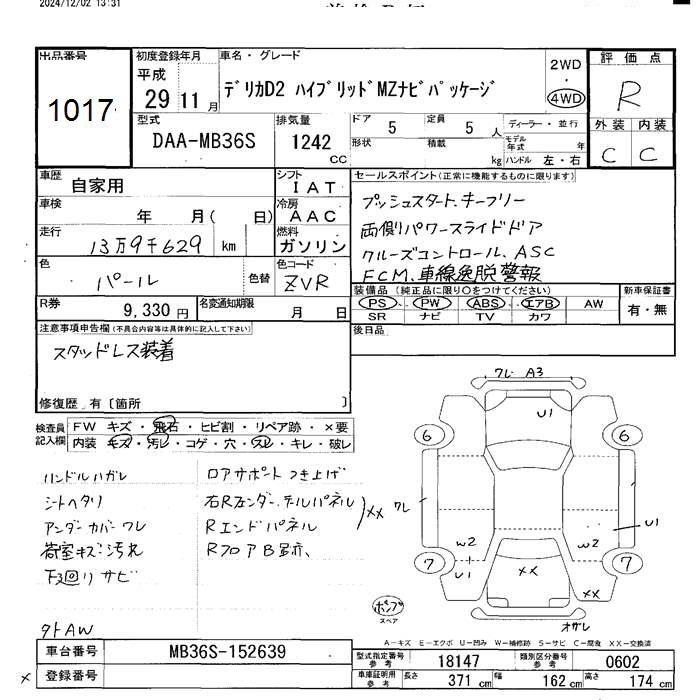 2024/12/02 13:31
出品番号
1017
初度登録年月
平成
29 11 月
車名・グレード
デリカD2 ハイブリッドMZナビパッケージ
2WD
・
4WD
評価点
R
型式
DAA-MB36S
排気量
1242
CC
ドア 5
定員 5 人
形状
積載 kg
ディーラー・並行
モデル年式 年
ハンドル 左・右
外装 内装
C C
車歴
自家用
シフト
IAT
車検
年 月( 日)
冷房
AAC
走行
13万9千629 km
燃料
ガソリン
色
パール
色替
色コード
ZVR
R券
9,330 円
名変通知期限
月 日
セールスポイント(正常に機能するものに限ります)
プッシュスタート.キーフリー
両側パワースライドドア
クルーズコントロール、ASC
FCM、車線逸脱警報
装備品(純正品に限り○をつけてください)
PS PW ABS エアB AW
SR ナビ TV カワ
新車保証書
有・無
後日品
注意事項申告欄(不具合内容等は具体的に記入して下さい)
スタッドレス装着
修復歴 有〔箇所 〕
検査員記入欄
FW キズ・飛石・ヒビ割・リペア跡・×要
内装 キズ・汚レ・コゲ・穴・スレ・キレ・破レ
ハンドルハガレ
シートヘタリ
アンダーカバーワレ
荷室キズ汚れ
下廻リサビ
ロアサポートつき上げ
右Rインダー.テールパネル
Rエンドパネル
XX
RフロアB跡、
外AW
ワレ A3
U1
6
6
ワレ
U1
W2
U1
W2
7
7
XX
XX
ポンプ
スペア
オサレ
A-キズ E-エクボ U-凹み W-補修跡 S-サビ C-腐食 XX-交換済
車台番号
MB36S-152639
登録番号
×
型式指定番号
参考
18147
類別区分番号
参考
0602
車庫証明用
参考
長さ 371 cm
幅 162 cm
高さ 174 cm